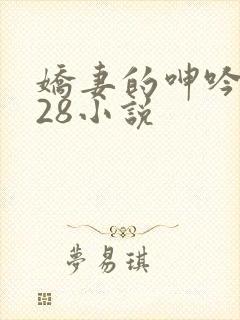 嬌妻的呻吟
28小說
夢易琪